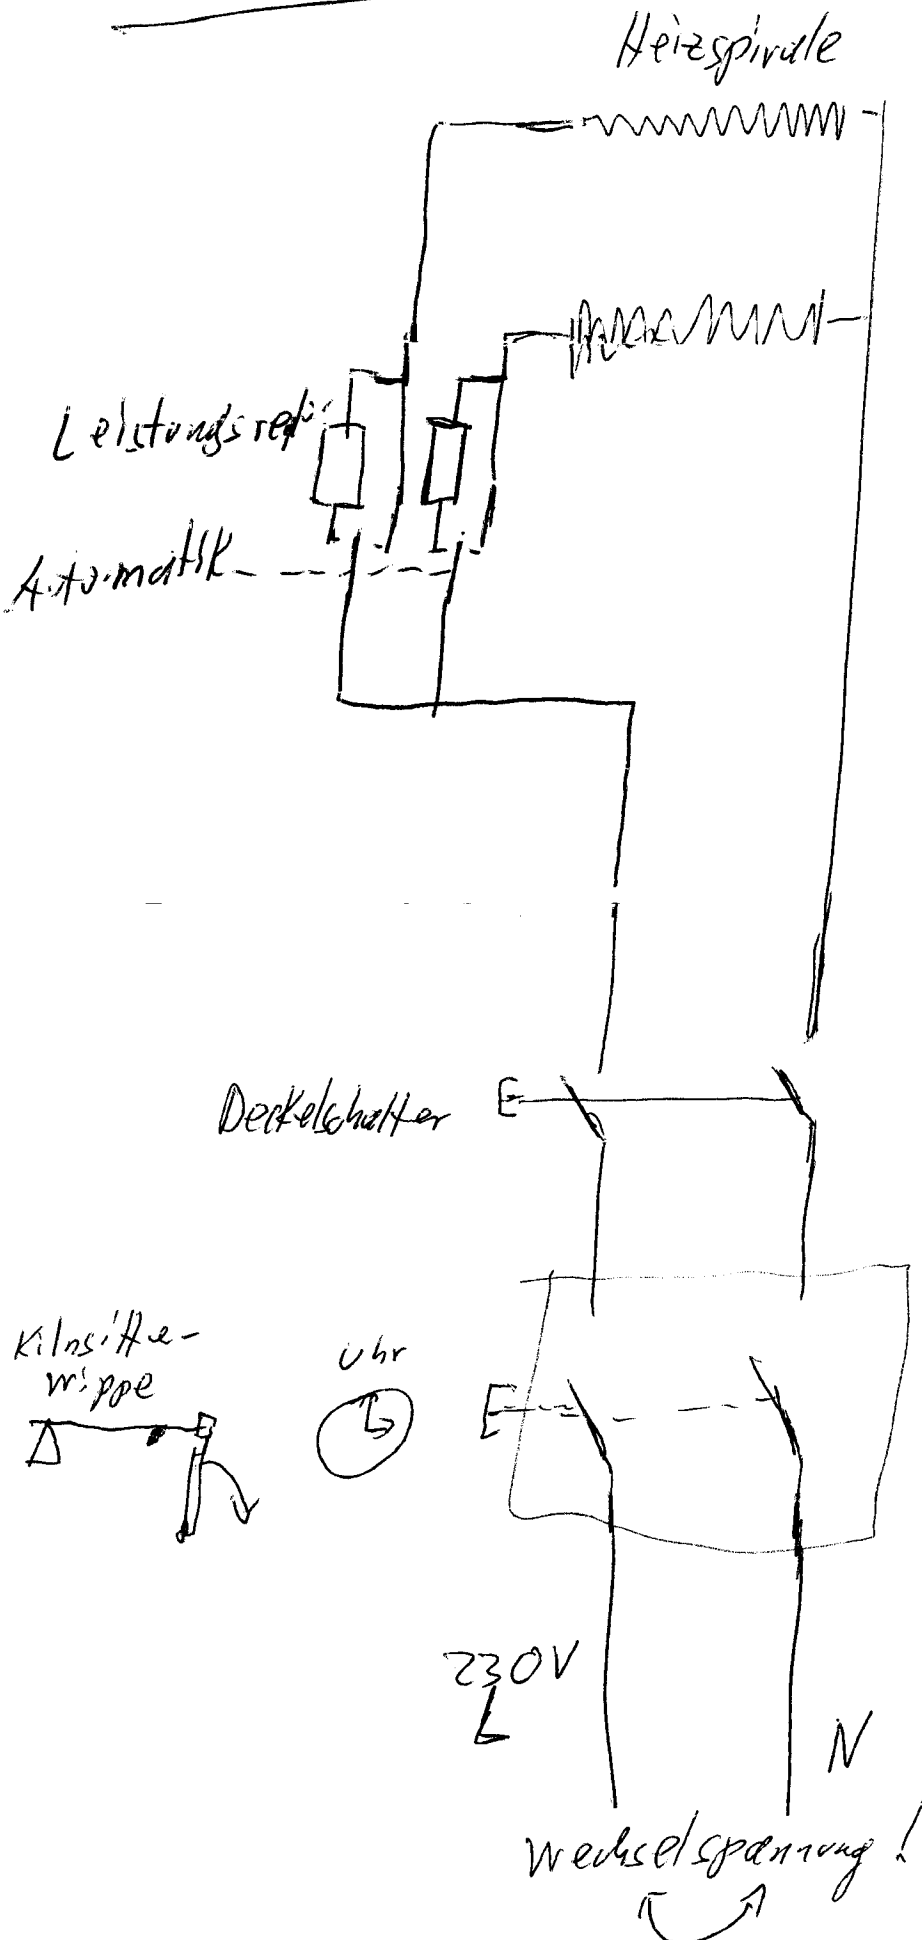 Heizspirale
Leistungsredu.
Automatik
Deckelschalter
Kilnsitter-
wippe
Uhr
230V
L
N
Wechselspannung!